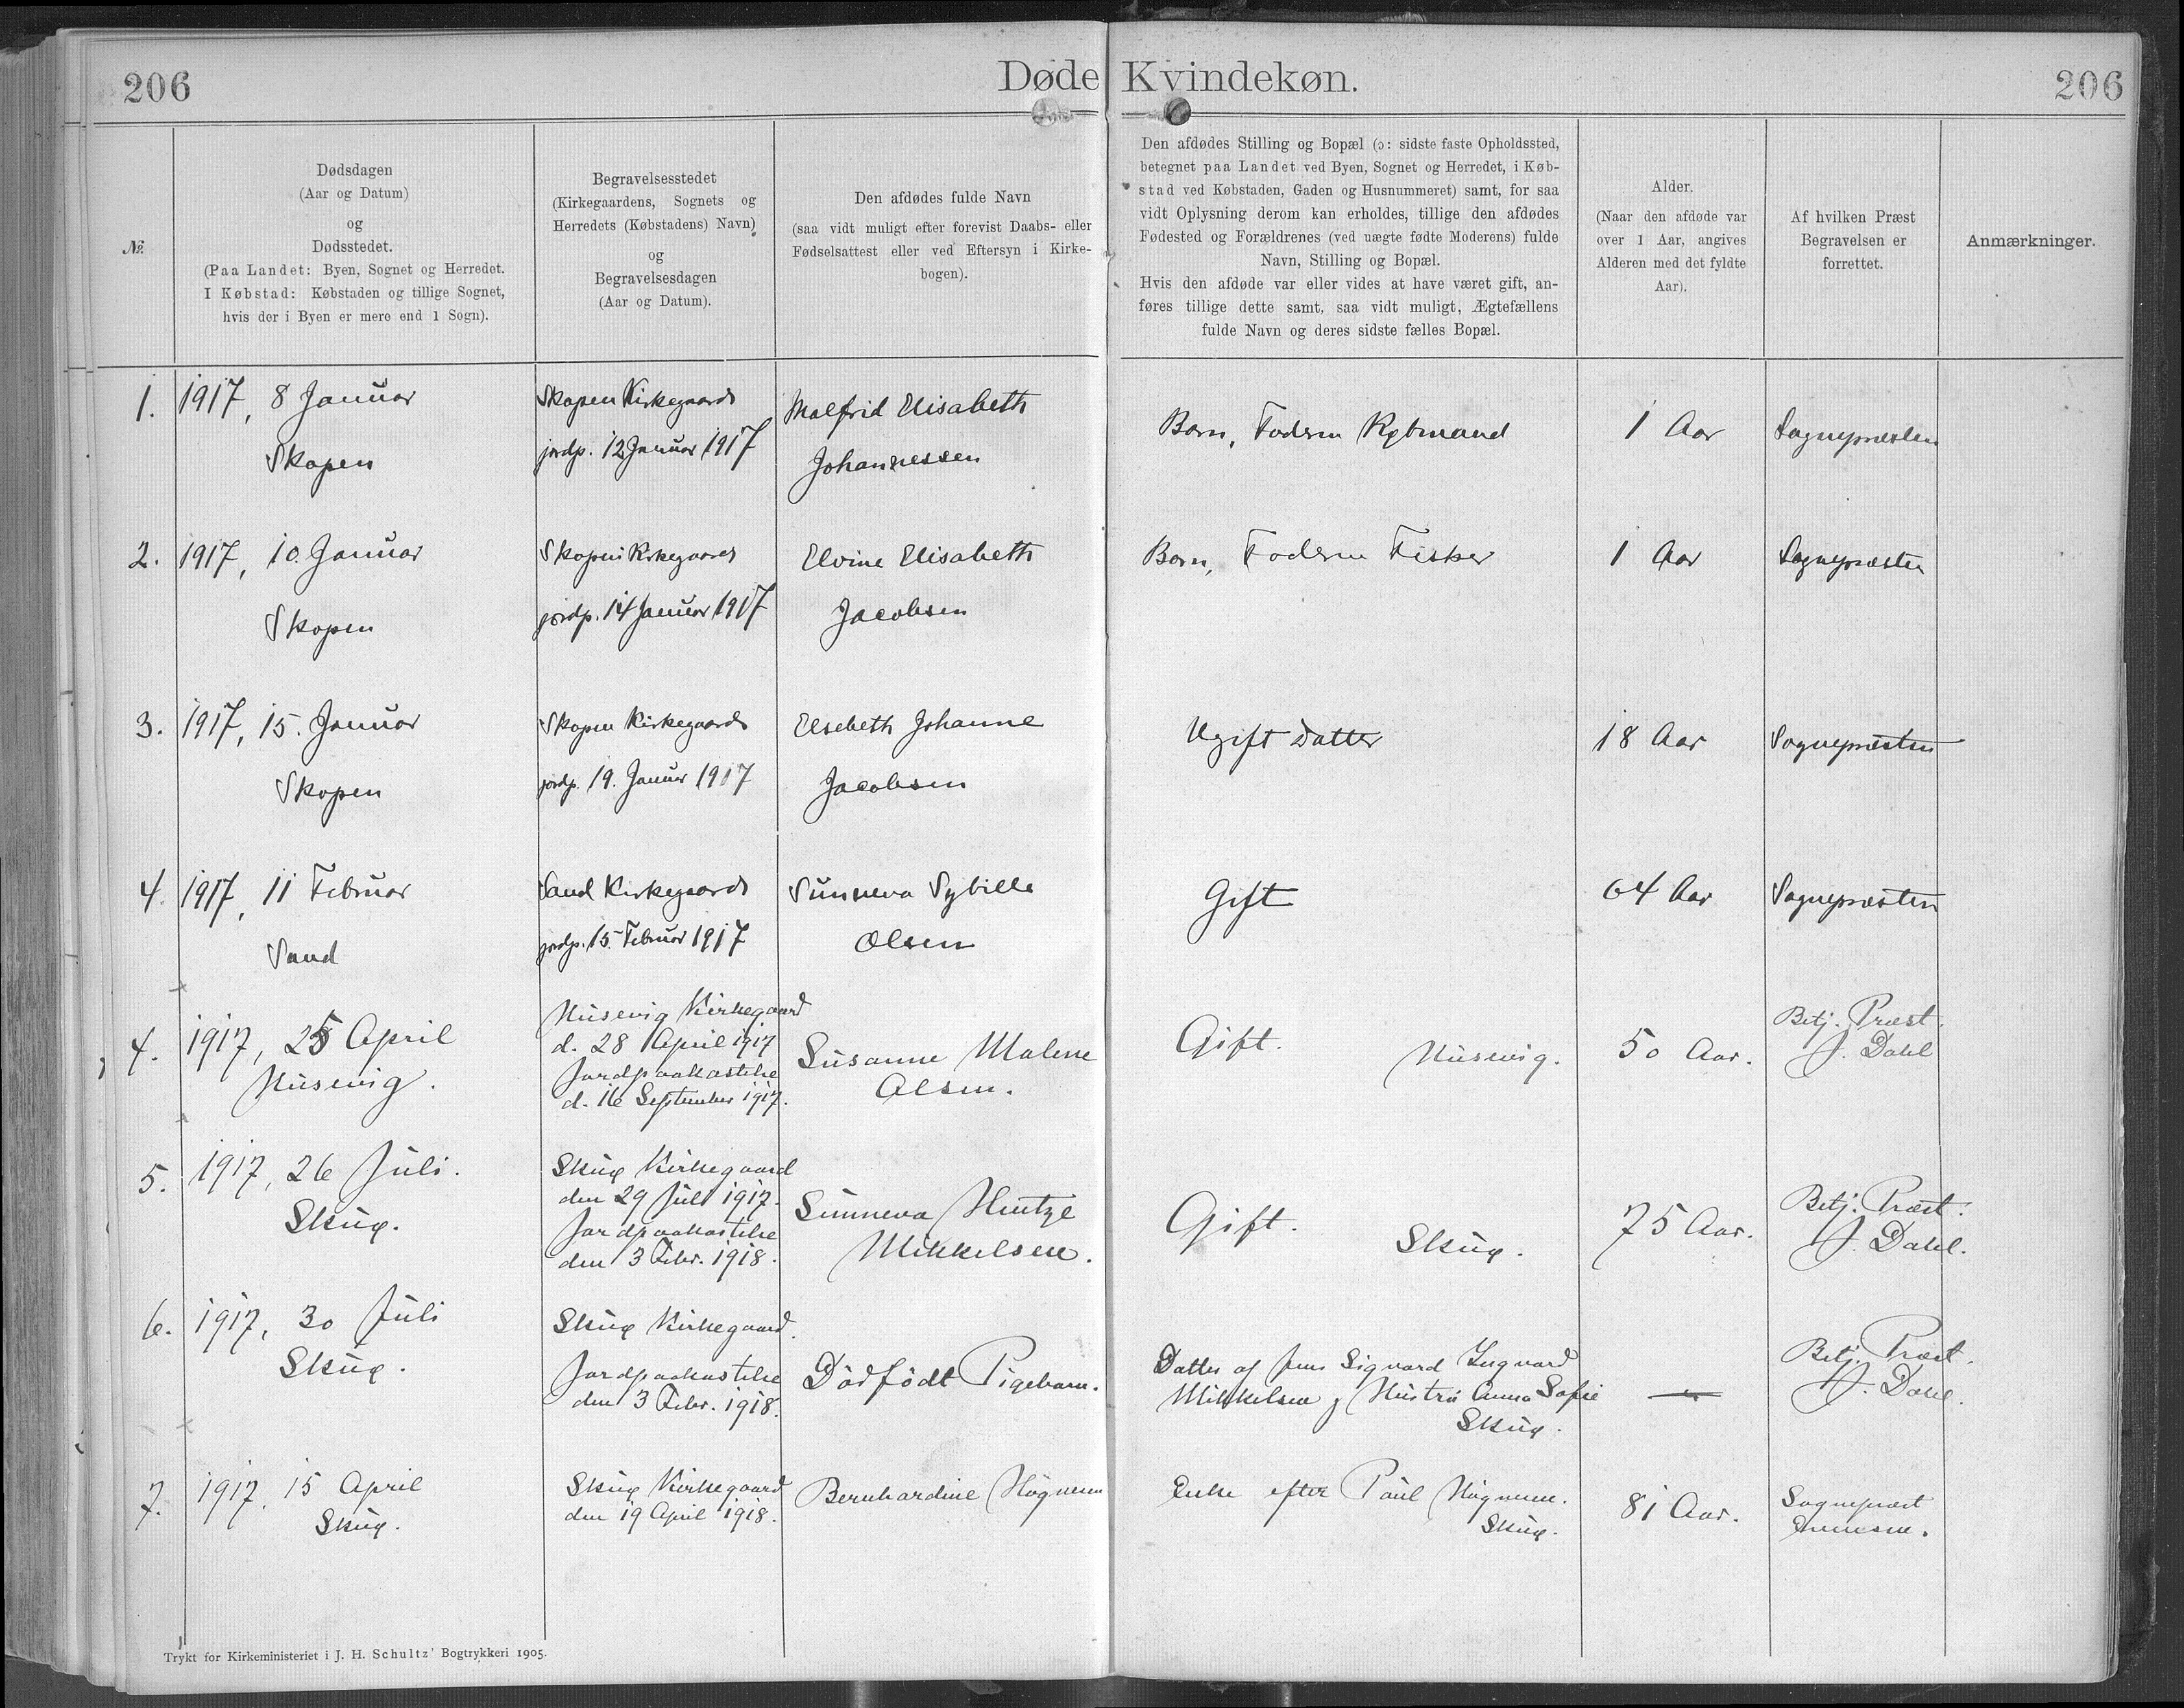 206
Døde Kvindekøn.
206
№
Dødsdagen
(Aar og Datum)
og
Dødsstedet.
(Paa Landet: Byen, Sognet og Herredet.
I Købstad: Købstaden og tillige Sognet,
hvis der i Byen er mere end 1 Sogn).
Begravelsesstedet
(Kirkegaardens, Sognets og
Herredets (Købstadens) Navn)
og
Begravelsesdagen
(Aar og Datum).
Den afdødes fulde Navn
(saa vidt muligt efter forevist Daabs- eller
Fødselsattest eller ved Eftersyn i Kirke-
bogen).
Den afdødes Stilling og Bopæl (ɔ: sidste faste Opholdssted,
betegnet paa Landet ved Byen, Sognet og Herredet, i Køb-
stad ved Købstaden, Gaden og Husnummeret) samt, for saa
vidt Oplysning derom kan erholdes, tillige den afdødes
Fødested og Forældrenes (ved uægte fødte Moderens) fulde
Navn, Stilling og Bopæl.
Hvis den afdøde var eller vides at have været gift, an-
føres tillige dette samt, saa vidt muligt, Ægtefællens
fulde Navn og deres sidste fælles Bopæl.
Alder.
(Naar den afdøde var
over 1 Aar, angives
Alderen med det fyldte
Aar).
Af hvilken Præst
Begravelsen er
forrettet.
Anmærkninger.
1.
1917, 8 Januar
Skopen
Skopen Kirkegaard
jordp. 12 Januar 1917
Malfrid Elisabeth
Johannessen
Barn, Faderen Købmand
1 Aar
Sognepræsten
2.
1917, 10. Januar
Skopen
Skopen Kirkegaard
jordp. 14 Januar 1917
Elvine Elisabeth
Jacobsen
Barn, Faderen Fisker
1 Aar
Sognepræsten
3.
1917, 15. Januar
Skopen
Skopen Kirkegaard
jordp. 19. Januar 1917
Elsebeth Johanne
Jacobsen
Ugift Datter
18 Aar
Sognepræsten
4.
1917, 11 Februar
Sand
Sand Kirkegaard
jordp. 15. Februar 1917
Sunneva Sybilla
Olsen
Gift
64 Aar
Sognepræsten
4.
1917, 25 April
Húsevig.
Húsevig Kirkegaard
d. 28 April 1917
Jordpaakastelse
d. 16 September 1917.
Susanne Malene
Olsen.
Gift. Húsevig.
50 Aar.
Betj. Præst.
J. Dahl
5.
1917, 26 Juli.
Skúø.
Skúø Kirkegaard
den 29 Juli 1917.
Jordpaakastelse
den 3 Febr. 1918.
Sunneva Hentze
Mikkelsen.
Gift. Skúø.
75 Aar.
Betj. Præst.
J. Dahl.
6.
1917, 30 Juli
Skúø.
Skúø Kirkegaard.
Jordpaakastelse
den 3 Febr. 1918.
Dödfödt Pigebarn.
Datter af Jens Sigvard Ingvard
Mikkelsen og Hústrú Anna Sofie
Skúø.
—
Betj. Præst.
J. Dahl.
7.
1917, 15 April
Skúø.
Skúø Kirkegaard
den 19 April 1918.
Bernhardine Høgnesen
Enke efter Paul Høgnesen.
Skúø.
81 Aar.
Sognepræst
Evensen.
Trykt for Kirkeministeriet i J. H. Schultz' Bogtrykkeri 1905.